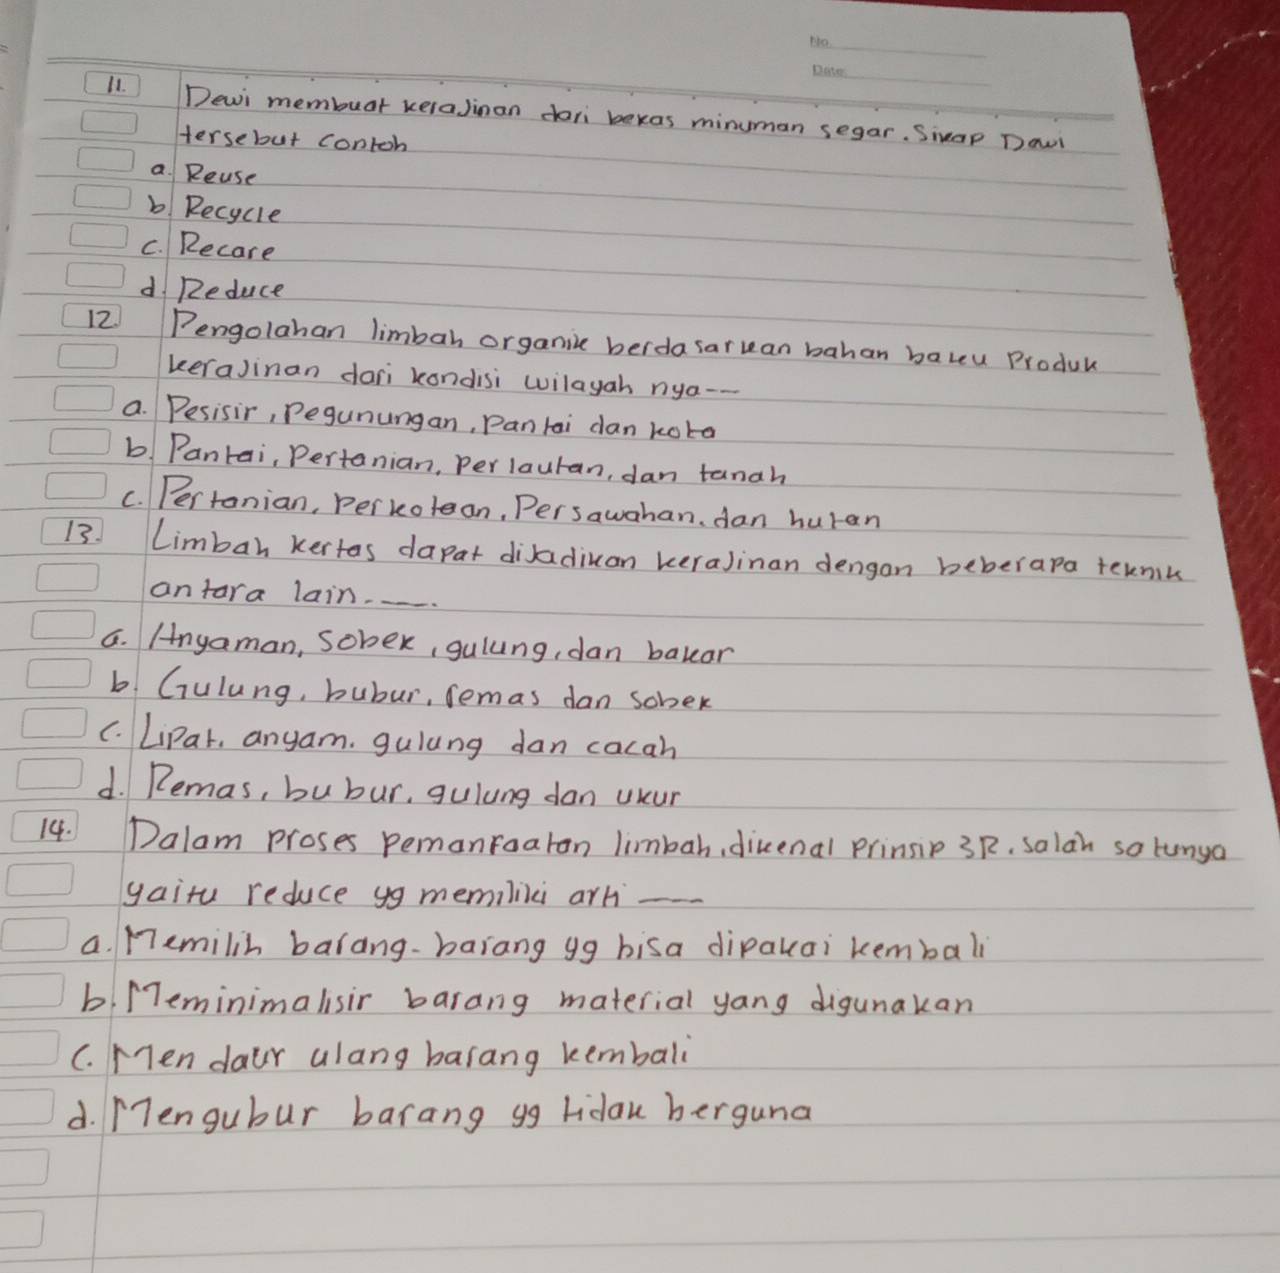 No
Date:
11. Dewi membuat kerajinan dari bekas minuman segar. Sikap Dewi
tersebut contoh
a. Reuse
b. Recycle
c. Recare
d. Reduce
12. Pengolahan limbah organik berdasarkan bahan baku produk
kerajinan dari kondisi wilayah nya ---
a. Pesisir, Pegunungan, pantai dan kota
b. Pantai, Pertanian, Perlautan, dan tanah
c. Pertanian, Perkotaan, Persawahan, dan hutan
13. Limbah kertas dapat dijadikan kerajinan dengan beberapa teknik
antara lain.----.
a. Anyaman, sobek, gulung, dan bakar
b. Gulung, bubur, remas dan sobek
c. Lipat, anyam. gulung dan cacah
d. Remas, bubur, gulung dan ukur
14. Dalam proses pemanfaatan limbah, dikenal prinsip 3R. salah satunya
yaitu reduce yg memiliki arti ----
a. Memilih barang-barang yg bisa dipakai kembali
b. Meminimalisir barang material yang digunakan
c. Mendaur ulang barang kembali
d. Mengubur barang yg tidak berguna